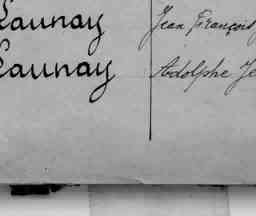 Launay Jean François
Launay Adolphe Je